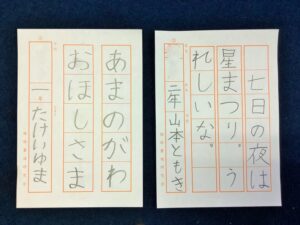 七日の夜は
星まつり。う
れしいな。
二年 山本ともき
あまのがわ
おほしさま
一年 たけいゆま